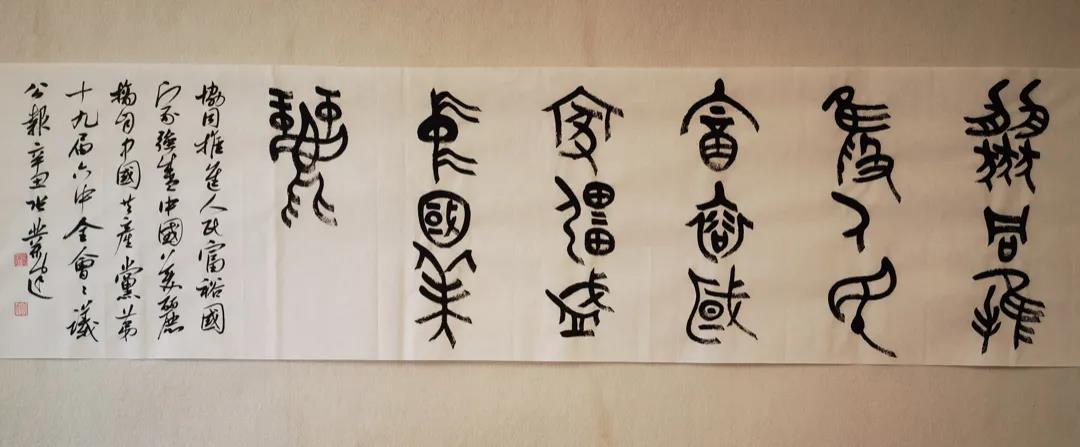 協同推
進人民
富裕國
家彊盛
中國美
麗
協同推進人民富裕國
家強盛中國美麗
摘自中國共產黨第
十九届六中全會々議
公報辛丑